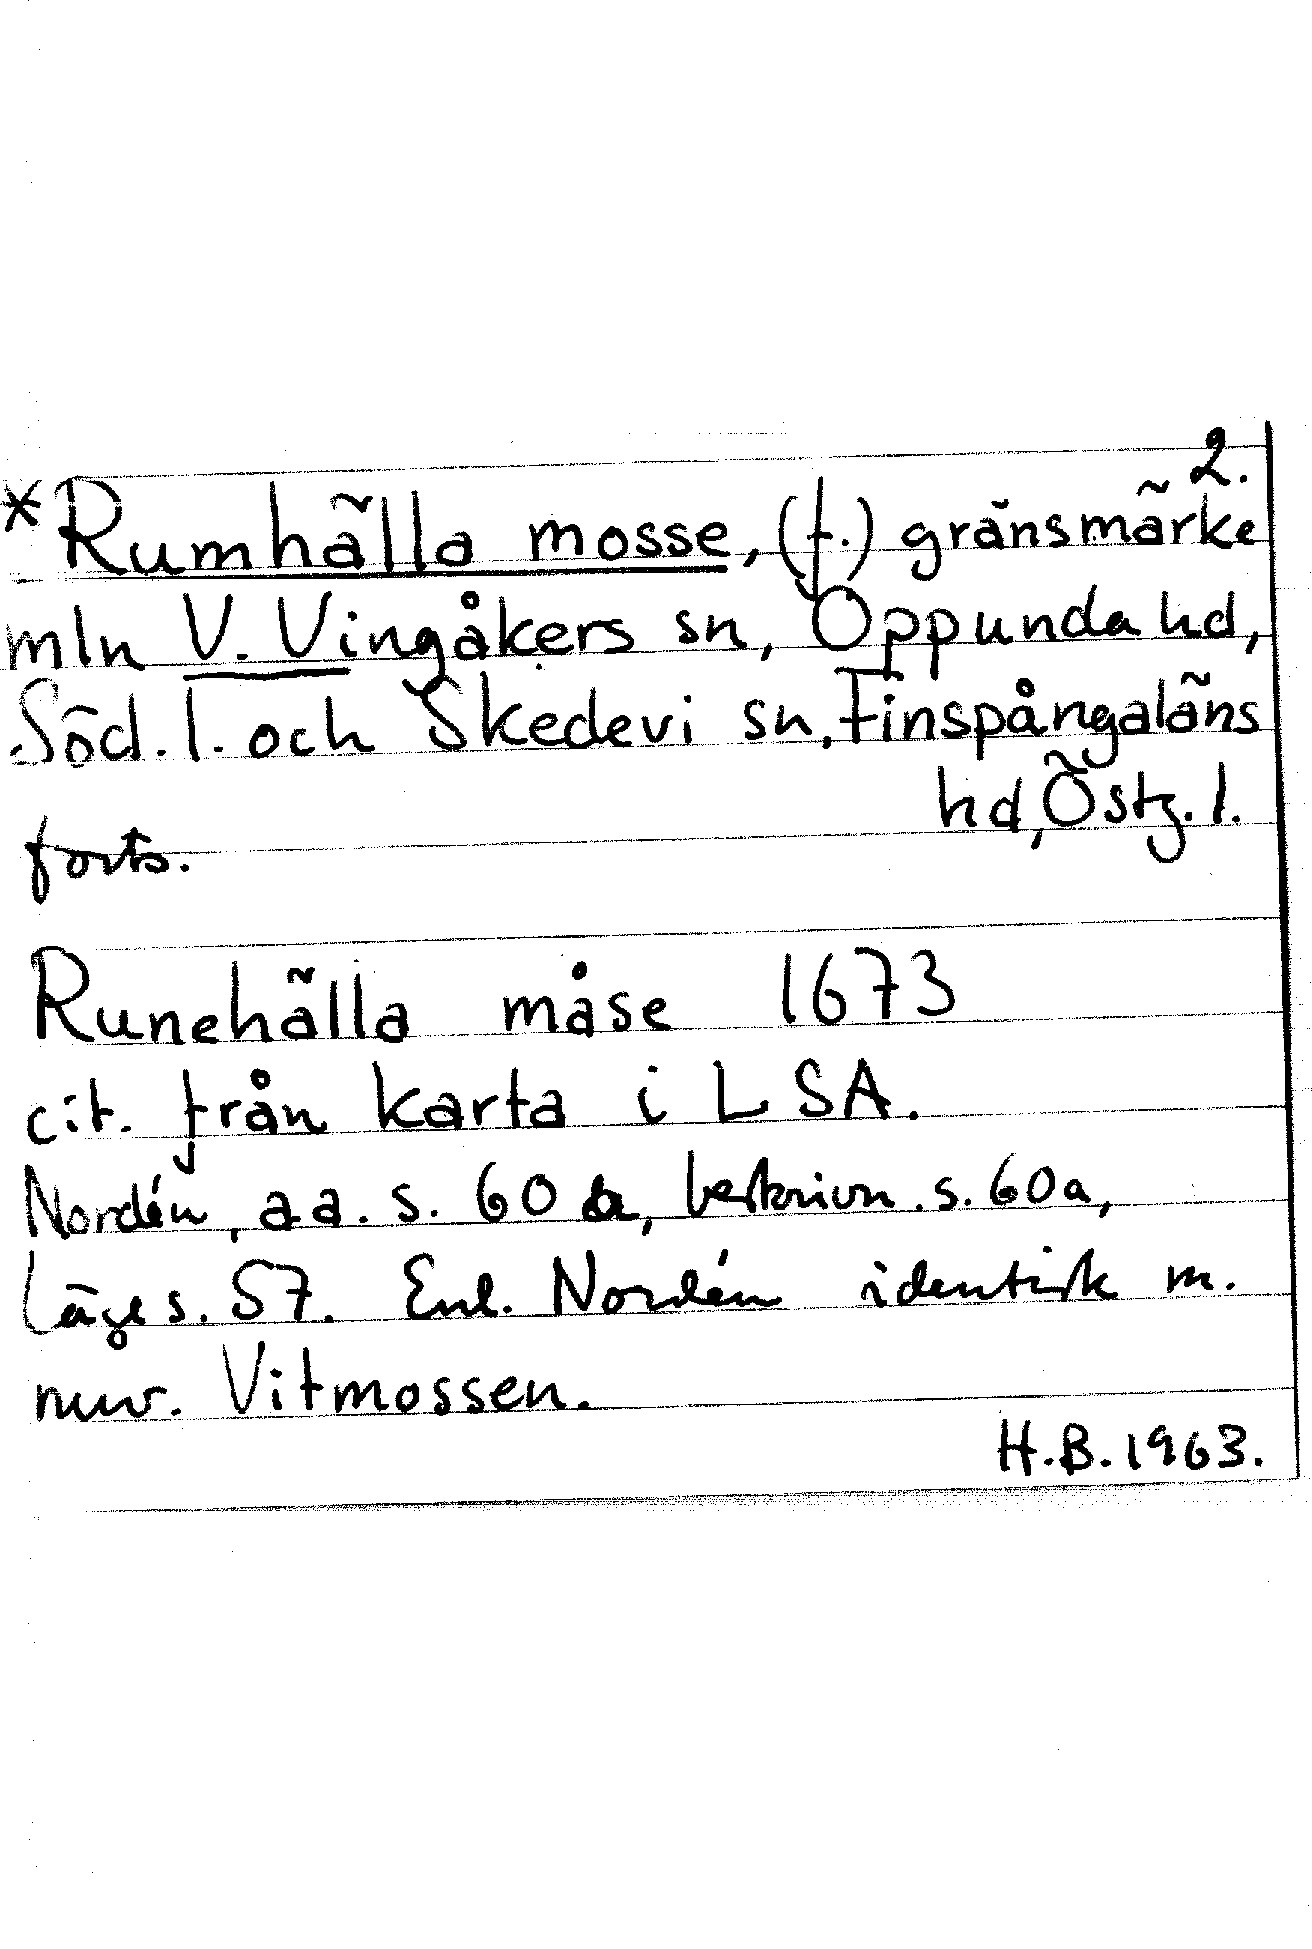 2.
*Rumhälla mosse, (f.) gränsmärke
mln V. Vingåkers sn, Oppunda hd,
Söd. l. och Skedevi sn, Finspångaläns
hd, Östg. l.
forts.
Runehälla måse 1673
cit. från karta i LSA.
Nordén, aa. s. 60 a, beskrivn. s. 60a,
läge s. 57. Enl. Nordén identisk m.
nuv. Vitmossen.
H.B. 1963.